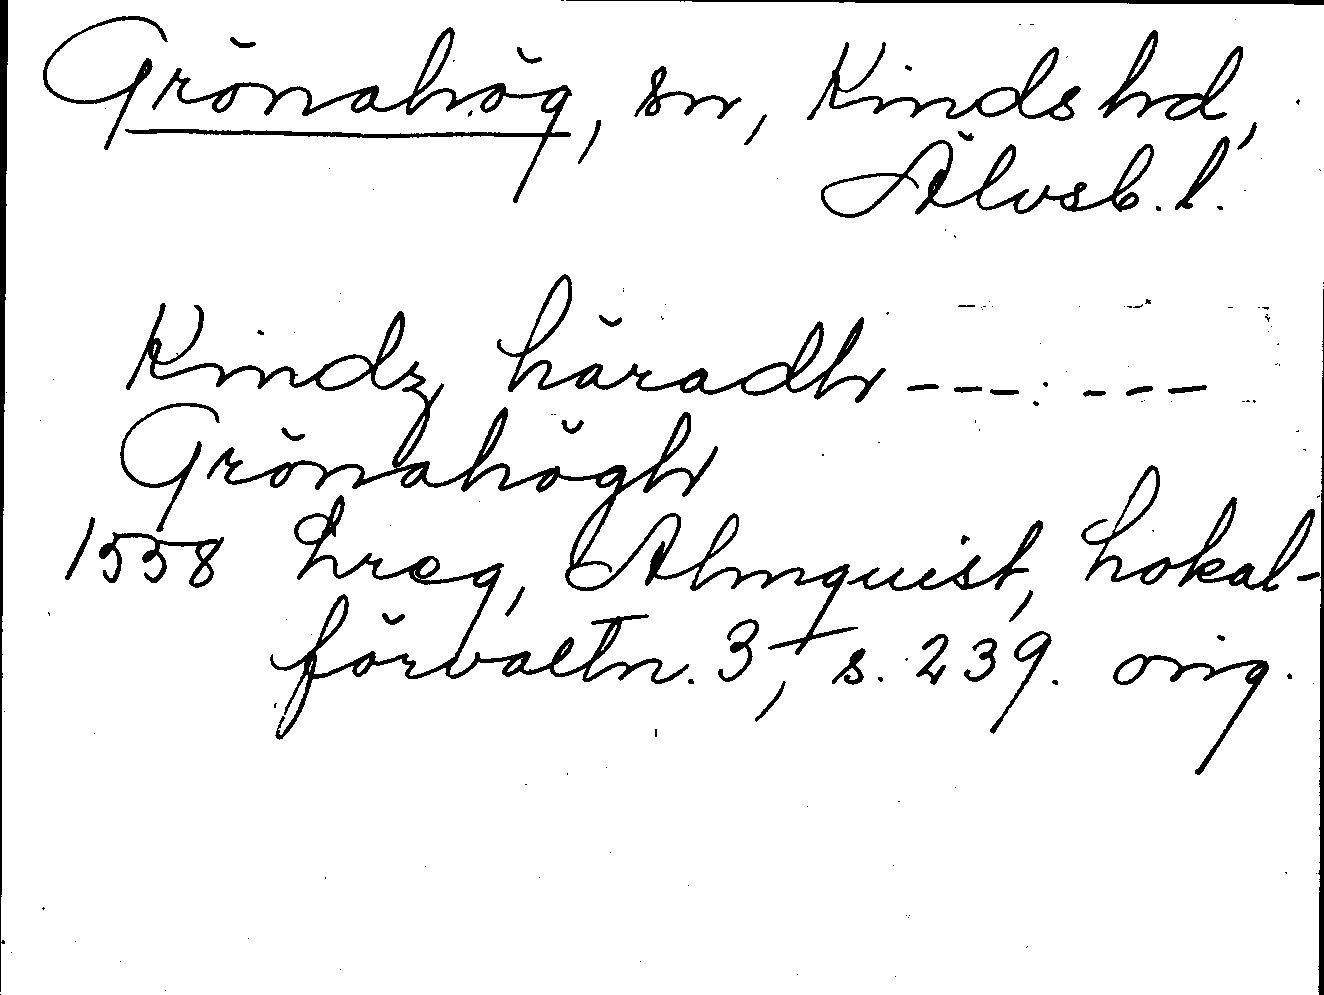 Grönahög, sn, Kinds hd,
Älvsb. l.
Kindz häradh --- : ---
Grönahögh
1558 Lreg, Almquist, Lokal-
förvaltn. 3, s. 239. orig.